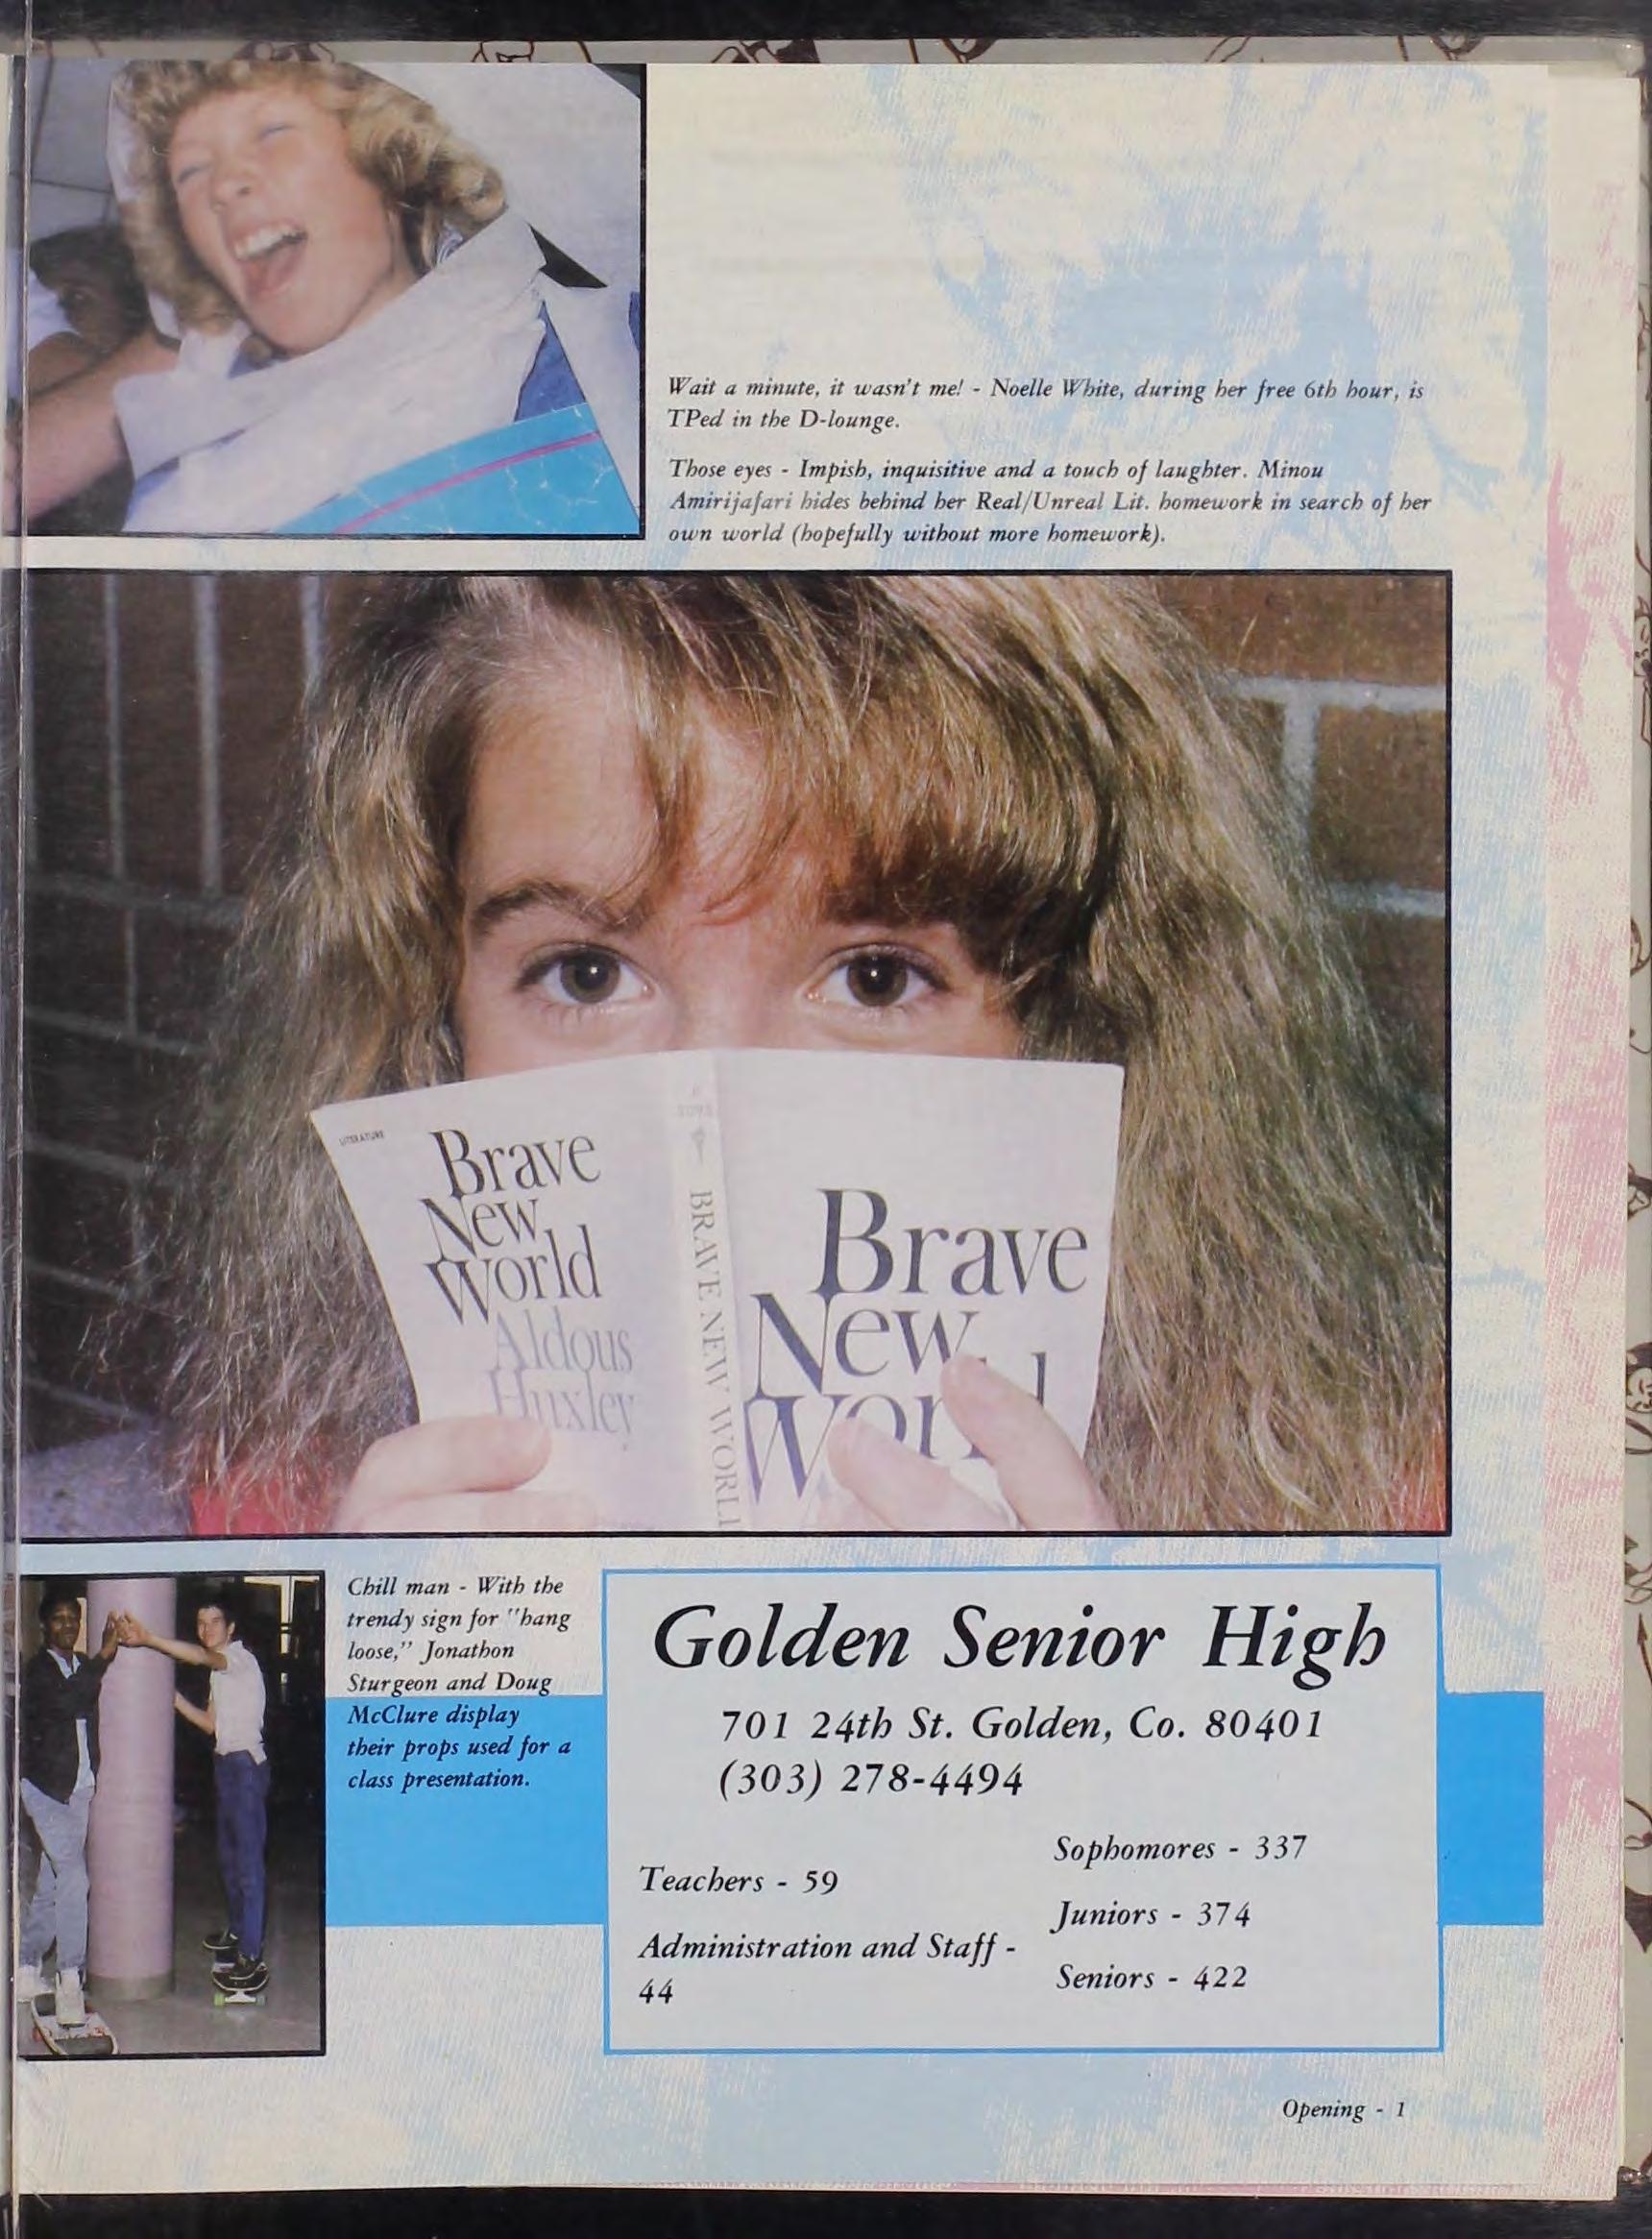 Wait a minute, it wasn't me! - Noelle White, during her free 6th hour, is
TPed in the D-lounge.
Those eyes - Impish, inquisitive and a touch of laughter. Minou
Amirijafari hides behind her Real/Unreal Lit. homework in search of her
own world (hopefully without more homework).
LITERATURE
Brave
New
World
Aldous
Huxley
BRAVE NEW WORL
Brave
New
World
Chill man - With the
trendy sign for "hang
loose," Jonathon
Sturgeon and Doug
McClure display
their props used for a
class presentation.
Golden Senior High
701 24th St. Golden, Co. 80401
(303) 278-4494
Teachers - 59
Administration and Staff -
44
Sophomores - 337
Juniors - 374
Seniors - 422
Opening - 1